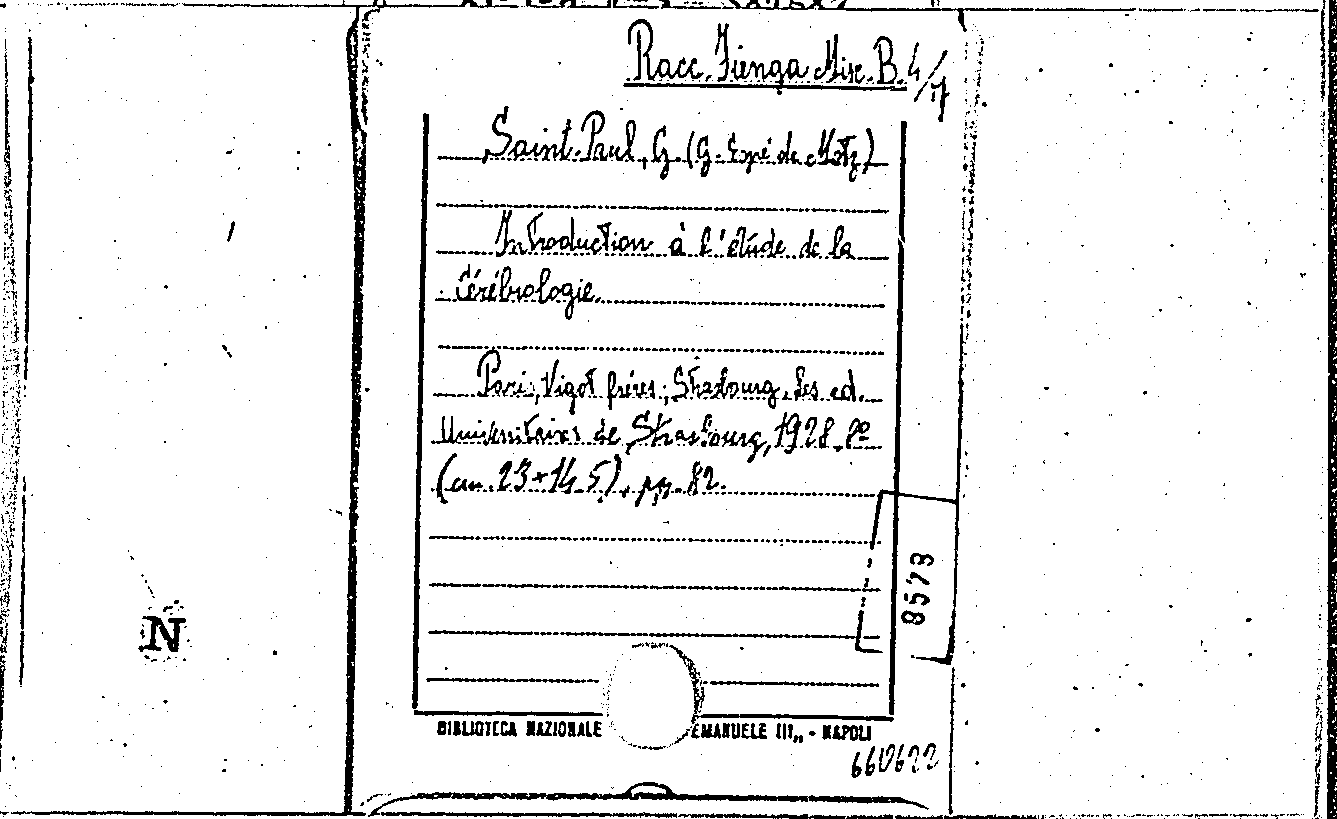 Racc. Fienga Misc. B. 4/17
Saint-Paul, G. (G. Espé de Metz)
Introduction à l'étude de la
Cérébrologie.
Paris, Vigot frères; Strasbourg, Les ed.
Universitaires de Strasbourg, 1928. 8°
(cm. 23 + 14.5), pp. 82.
8579
N
BIBLIOTECA NAZIONALE EMANUELE III„ - NAPOLI
660622